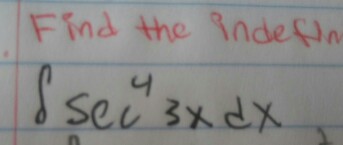 Find the indefin
∫ sec⁴ 3x dx